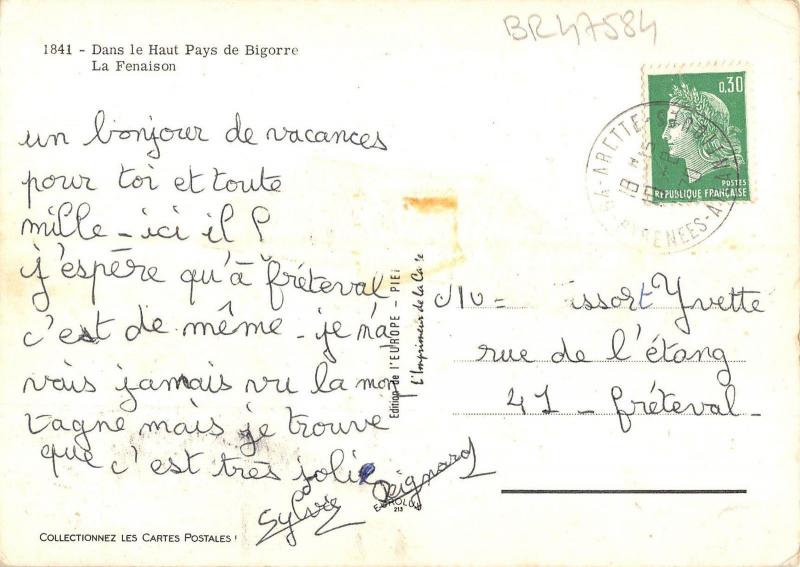 BR47584
1841 - Dans le Haut Pays de Bigorre
La Fenaison
0,30
POSTES
REPUBLIQUE FRANÇAISE
un bonjour de vacances
pour toi et toute
mille - ici il
j'espère qu'à fréteval
c'est de même - je n'a
vais jamais vu la mon
tagne mais je trouve
que c'est très jolie
Sylvie Peignard
Edition de l'EUROPE - PIE
l'Imprimeur de la Ca
issort Yvette
rue de l'étang
41 - fréteval -
213
COLLECTIONNEZ LES CARTES POSTALES !